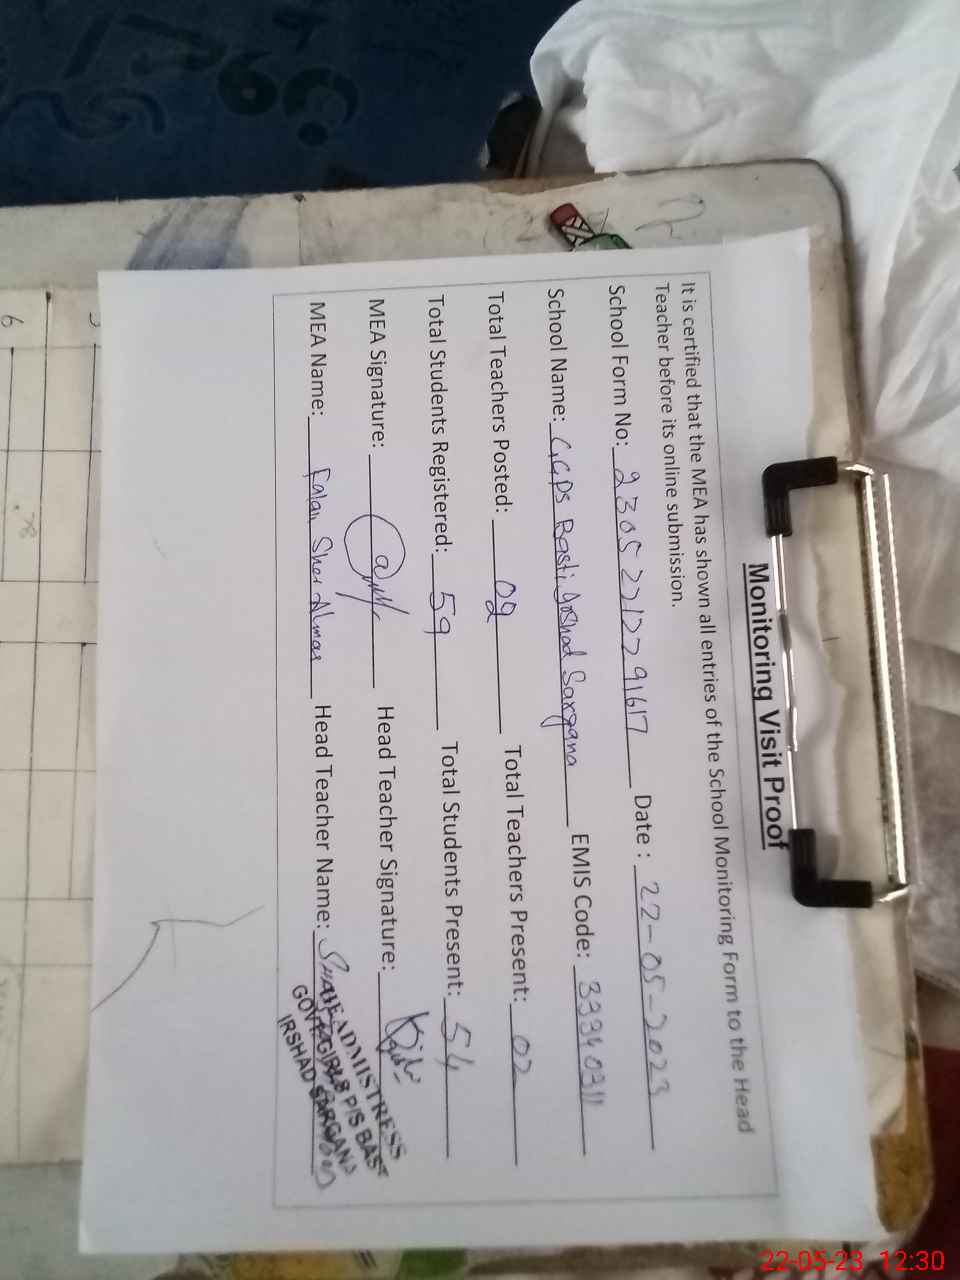 Monitoring Visit Proof
It is certified that the MEA has shown all entries of the School Monitoring Form to the Head
Teacher before its online submission.
School Form No: Date : 22-05-2023
School Name: G.G.PS Basti Irshad Sargana EMIS Code: 33340311
Total Teachers Posted: 02 Total Teachers Present: 02
Total Students Registered: 59 Total Students Present: 54
MEA Signature: Head Teacher Signature:
MEA Name: Falak Sher Head Teacher Name:
HEADMISTRESS
GOVT. GIRLS P/S BAST
IRSHAD SARGANA
6
22-05-23 12:30